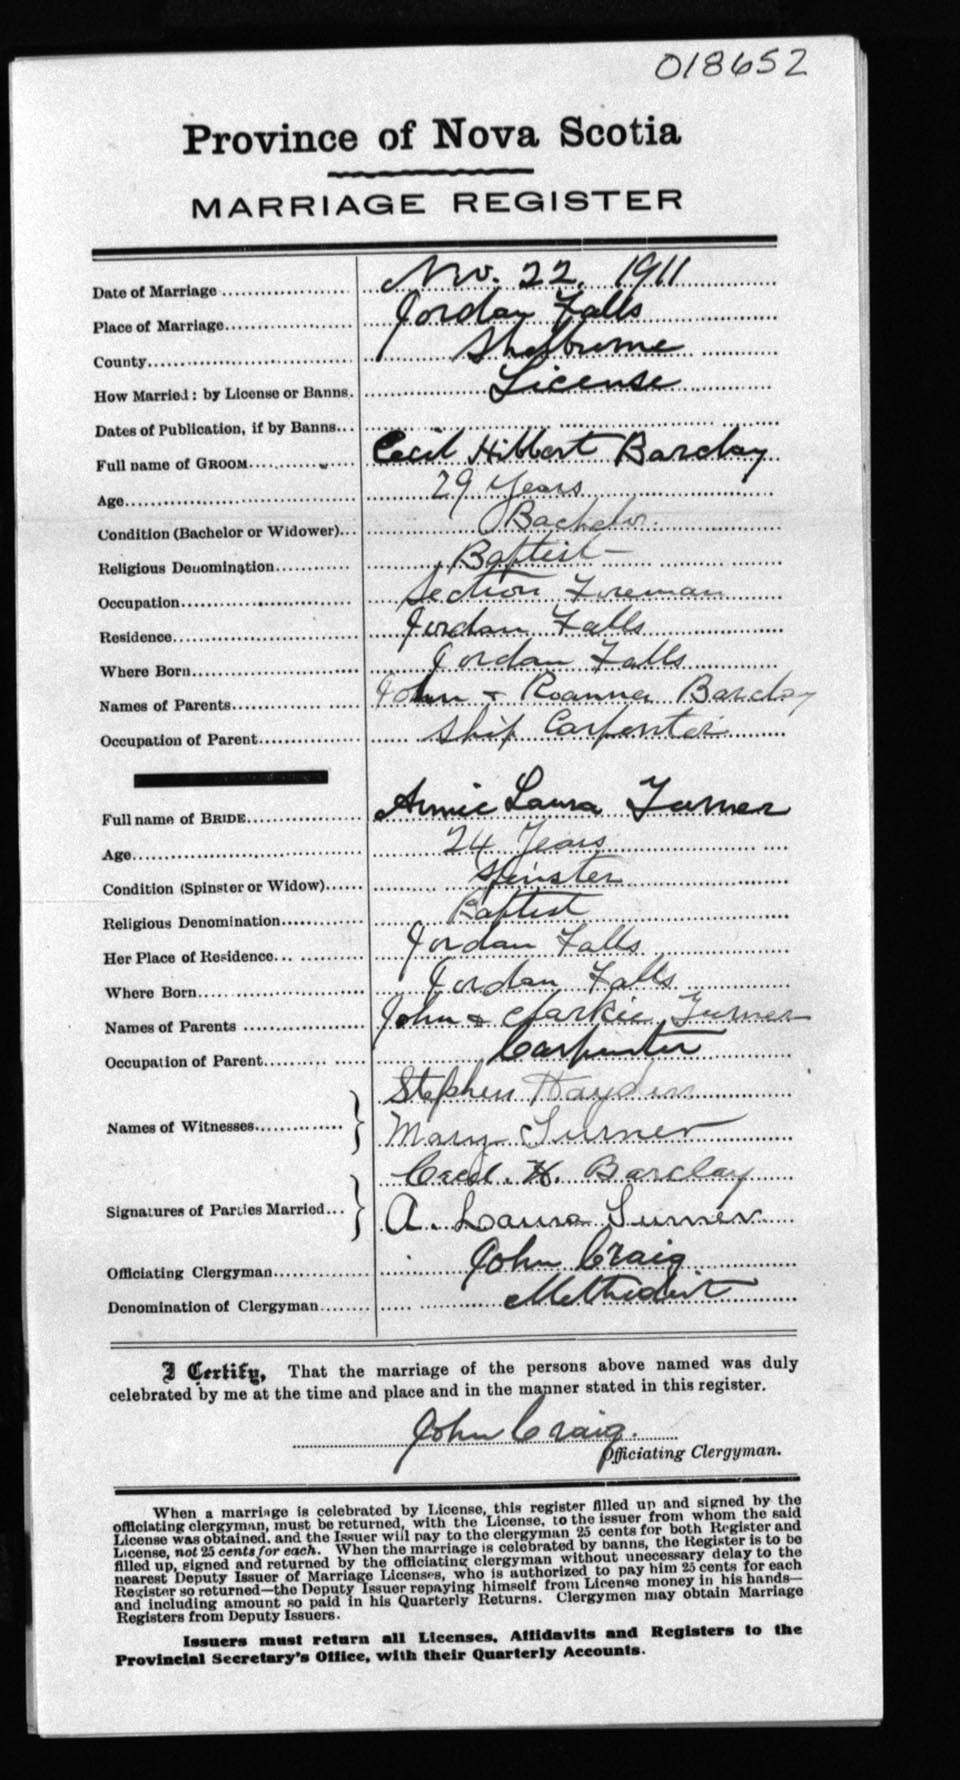 018652
Province of Nova Scotia
MARRIAGE REGISTER
Date of Marriage Nov. 22, 1911
Place of Marriage Jordan Falls
County Shelburne
How Married: by License or Banns. License
Dates of Publication, if by Banns
Full name of GROOM Cecil Hibbert Barclay
Age 29 Years
Condition (Bachelor or Widower) Bachelor
Religious Denomination Baptist
Occupation Section Foreman
Residence Jordan Falls
Where Born Jordan Falls
Names of Parents John + Roanna Barclay
Occupation of Parent Ship Carpenter
Full name of BRIDE Annie Laura Turner
Age 24 Years
Condition (Spinster or Widow) Spinster
Religious Denomination Baptist
Her Place of Residence Jordan Falls
Where Born Jordan Falls
Names of Parents John + Clarkie Turner
Occupation of Parent Carpenter
Stephen Hayden
Names of Witnesses
Mary Turner
Cecil. H. Barclay
Signatures of Parties Married
A. Laura Turner
Officiating Clergyman John Craig
Denomination of Clergyman Methodist
I Certify, That the marriage of the persons above named was duly
celebrated by me at the time and place and in the manner stated in this register.
John Craig.
Officiating Clergyman.
When a marriage is celebrated by License, this register filled up and signed by the
officiating clergyman, must be returned, with the License, to the issuer from whom the said
License was obtained, and the Issuer will pay to the clergyman 25 cents for both Register and
License, not 25 cents for each. When the marriage is celebrated by banns, the Register is to be
filled up, signed and returned by the officiating clergyman without unecessary delay to the
nearest Deputy Issuer of Marriage Licenses, who is authorized to pay him 25 cents for each
Register so returned—the Deputy Issuer repaying himself from License money in his hands—
and including amount so paid in his Quarterly Returns. Clergymen may obtain Marriage
Registers from Deputy Issuers.
Issuers must return all Licenses, Affidavits and Registers to the
Provincial Secretary's Office, with their Quarterly Accounts.